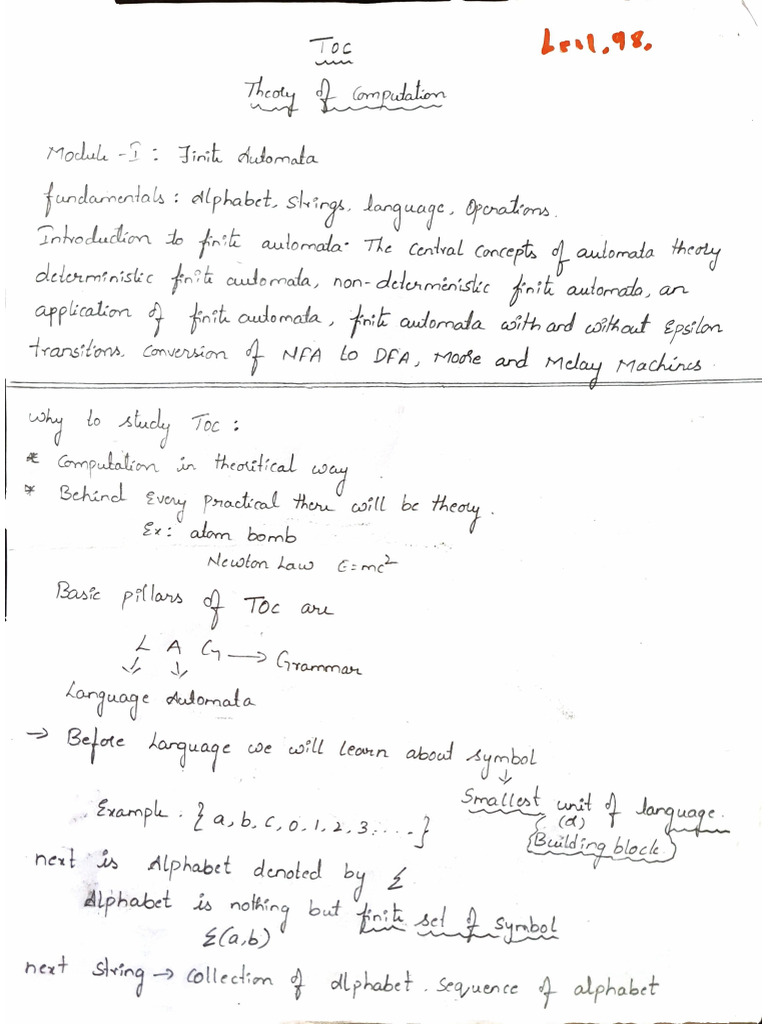 TOC
Theory of Computation
Module - I : Finite Automata
fundamentals : Alphabet, strings, language, Operations.
Introduction to finite automata. The central concepts of automata theory
deterministic finite automata, non-deterministic finite automata, an
application of finite automata, finite automata with and without Epsilon
transitions. Conversion of NFA to DFA, Moore and Melay Machines.
Why to study TOC :
* Computation in theoritical way
* Behind Every practical there will be theory.
Ex: atom bomb
Newton Law E=mc²
Basic pillars of TOC are
L A G → Grammar
Language Automata
→ Before Language we will learn about symbol
Smallest unit of language.
Example. {a, b, c, 0, 1, 2, 3. . . .}
(or)
Building block
next is Alphabet denoted by Σ
Alphabet is nothing but finite set of symbol
Σ(a,b)
next string → collection of alphabet. sequence of alphabet